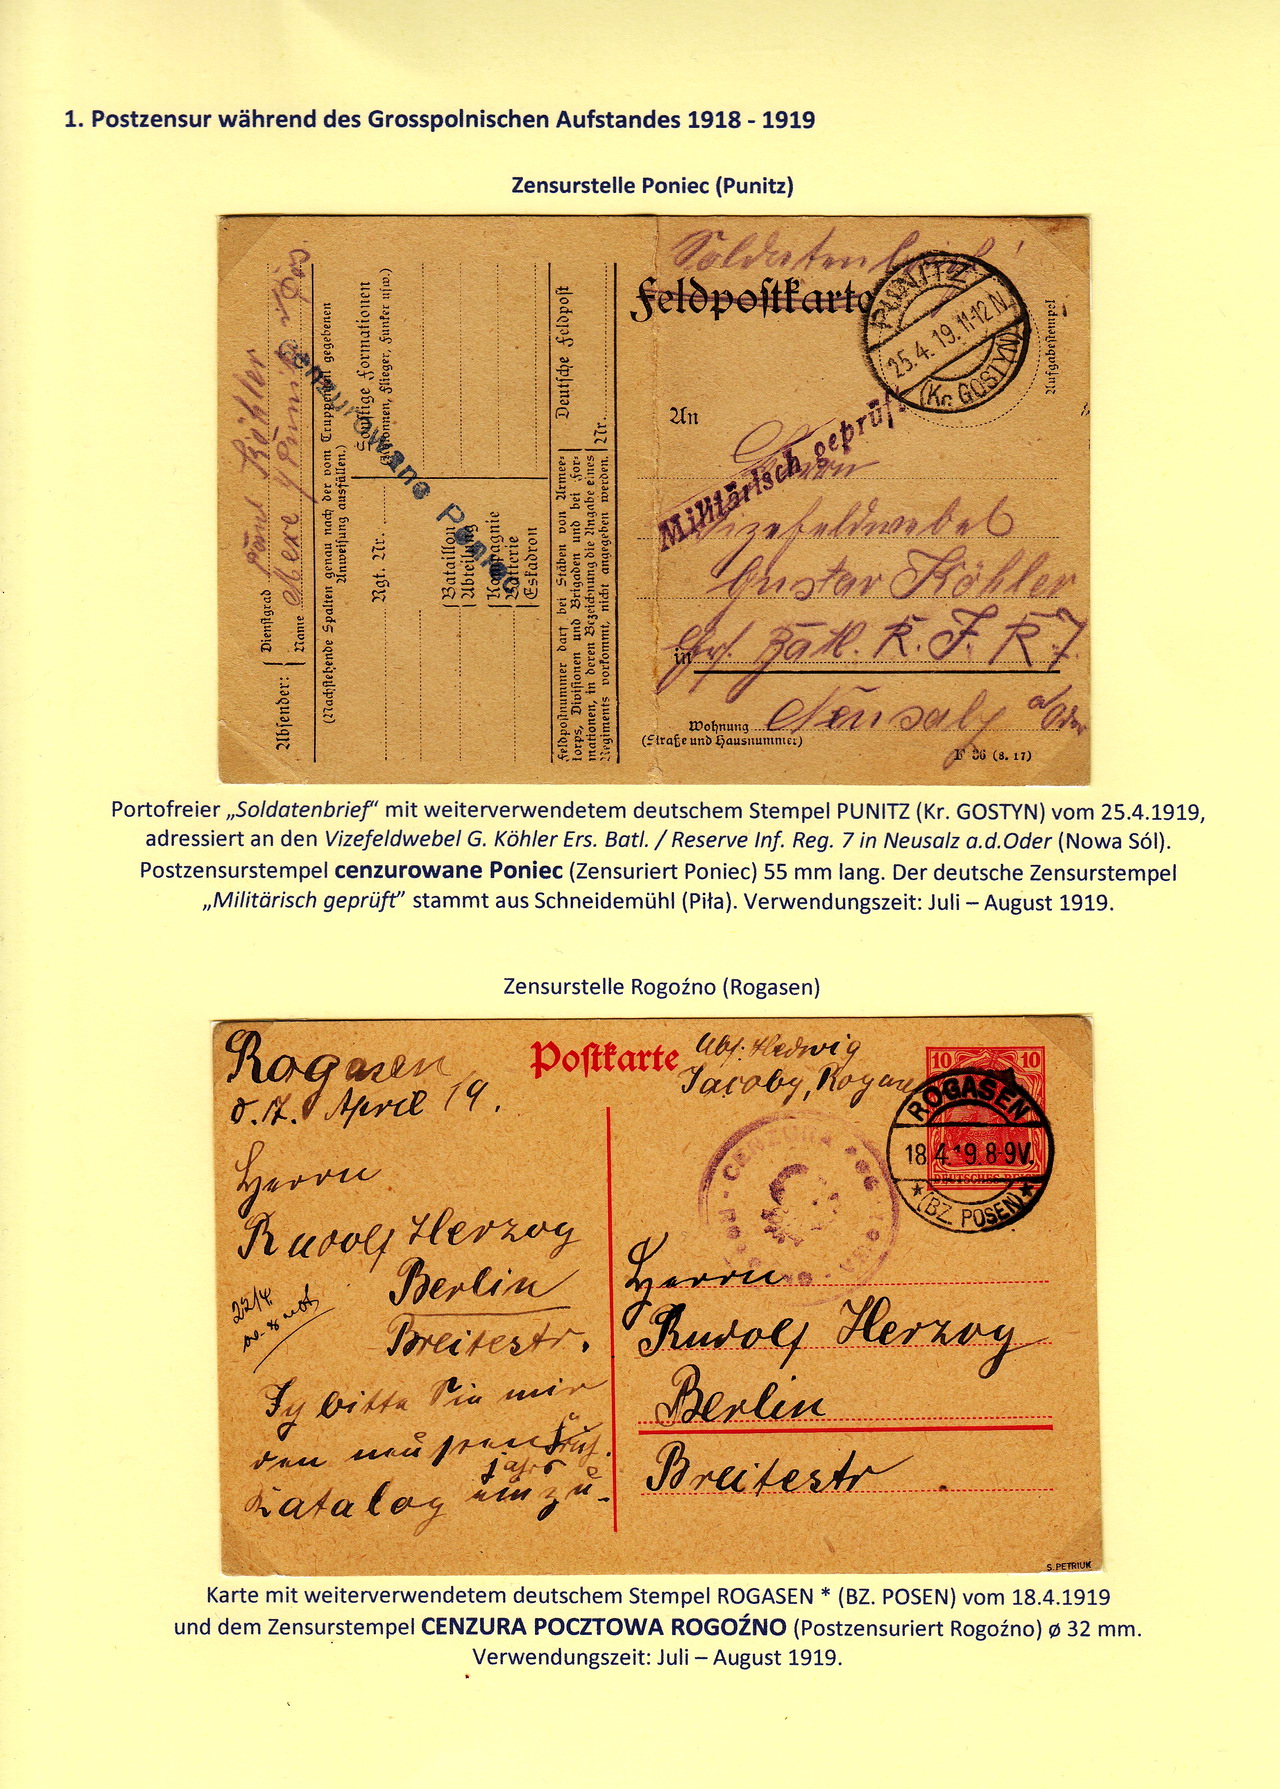 1. Postzensur während des Grosspolnischen Aufstandes 1918 - 1919
Zensurstelle Poniec (Punitz)
Absender: Dienstgrad Paul Köhler
Name
(Nachstehende Spalten genau nach der vom Truppenteil gegebenen
Anweisung ausfüllen.)
Sonstige Formationen
(Kolonnen, Flieger, Funker usw.)
Rgt. Nr.
Bataillon
Abteilung
Kompagnie
Batterie
Eskadron
Deutsche Feldpost
Nr.
Feldpostnummer darf bei Stäben von Armee-
korps, Divisionen und Brigaden und bei For-
mationen, in deren Bezeichnung die Angabe eines
Regiments vorkommt, nicht angegeben werden.
cenzurowane Poniec
Soldatenbrief!
Feldpostkarte
PUNITZ
25.4.19.11-12N
(Kr. GOSTYN)
Aufgabestempel
An
Militärisch geprüft.
Herrn
Vizefeldwebel
Gustav Köhler
in Ers. Batl. R. J. R. 7.
Neusalz a/Oder
Wohnung
(Straße und Hausnummer)
F 36 (8. 17)
Portofreier „Soldatenbrief“ mit weiterverwendetem deutschem Stempel PUNITZ (Kr. GOSTYN) vom 25.4.1919,
adressiert an den Vizefeldwebel G. Köhler Ers. Batl. / Reserve Inf. Reg. 7 in Neusalz a.d.Oder (Nowa Sól).
Postzensurstempel cenzurowane Poniec (Zensuriert Poniec) 55 mm lang. Der deutsche Zensurstempel
„Militärisch geprüft” stammt aus Schneidemühl (Piła). Verwendungszeit: Juli – August 1919.
Zensurstelle Rogoźno (Rogasen)
Rogasen
d. 17. April 19.
Herrn
Rudolf Herzog
Berlin
Breitestr.
22/4
Ich bitte Sie mir
den neusten Früh.
jahrs
Katalog einzu-
Postkarte
Abs: Hedwig
Jacoby, Rogasen
10 10
DEUTSCHES REICH
ROGASEN
18.4.19.8-9V.
*(BZ. POSEN)*
CENZURA
Herrn
Rudolf Herzog
Berlin
Breitestr.
S. PETRIUK
Karte mit weiterverwendetem deutschem Stempel ROGASEN * (BZ. POSEN) vom 18.4.1919
und dem Zensurstempel CENZURA POCZTOWA ROGOŹNO (Postzensuriert Rogoźno) ø 32 mm.
Verwendungszeit: Juli – August 1919.